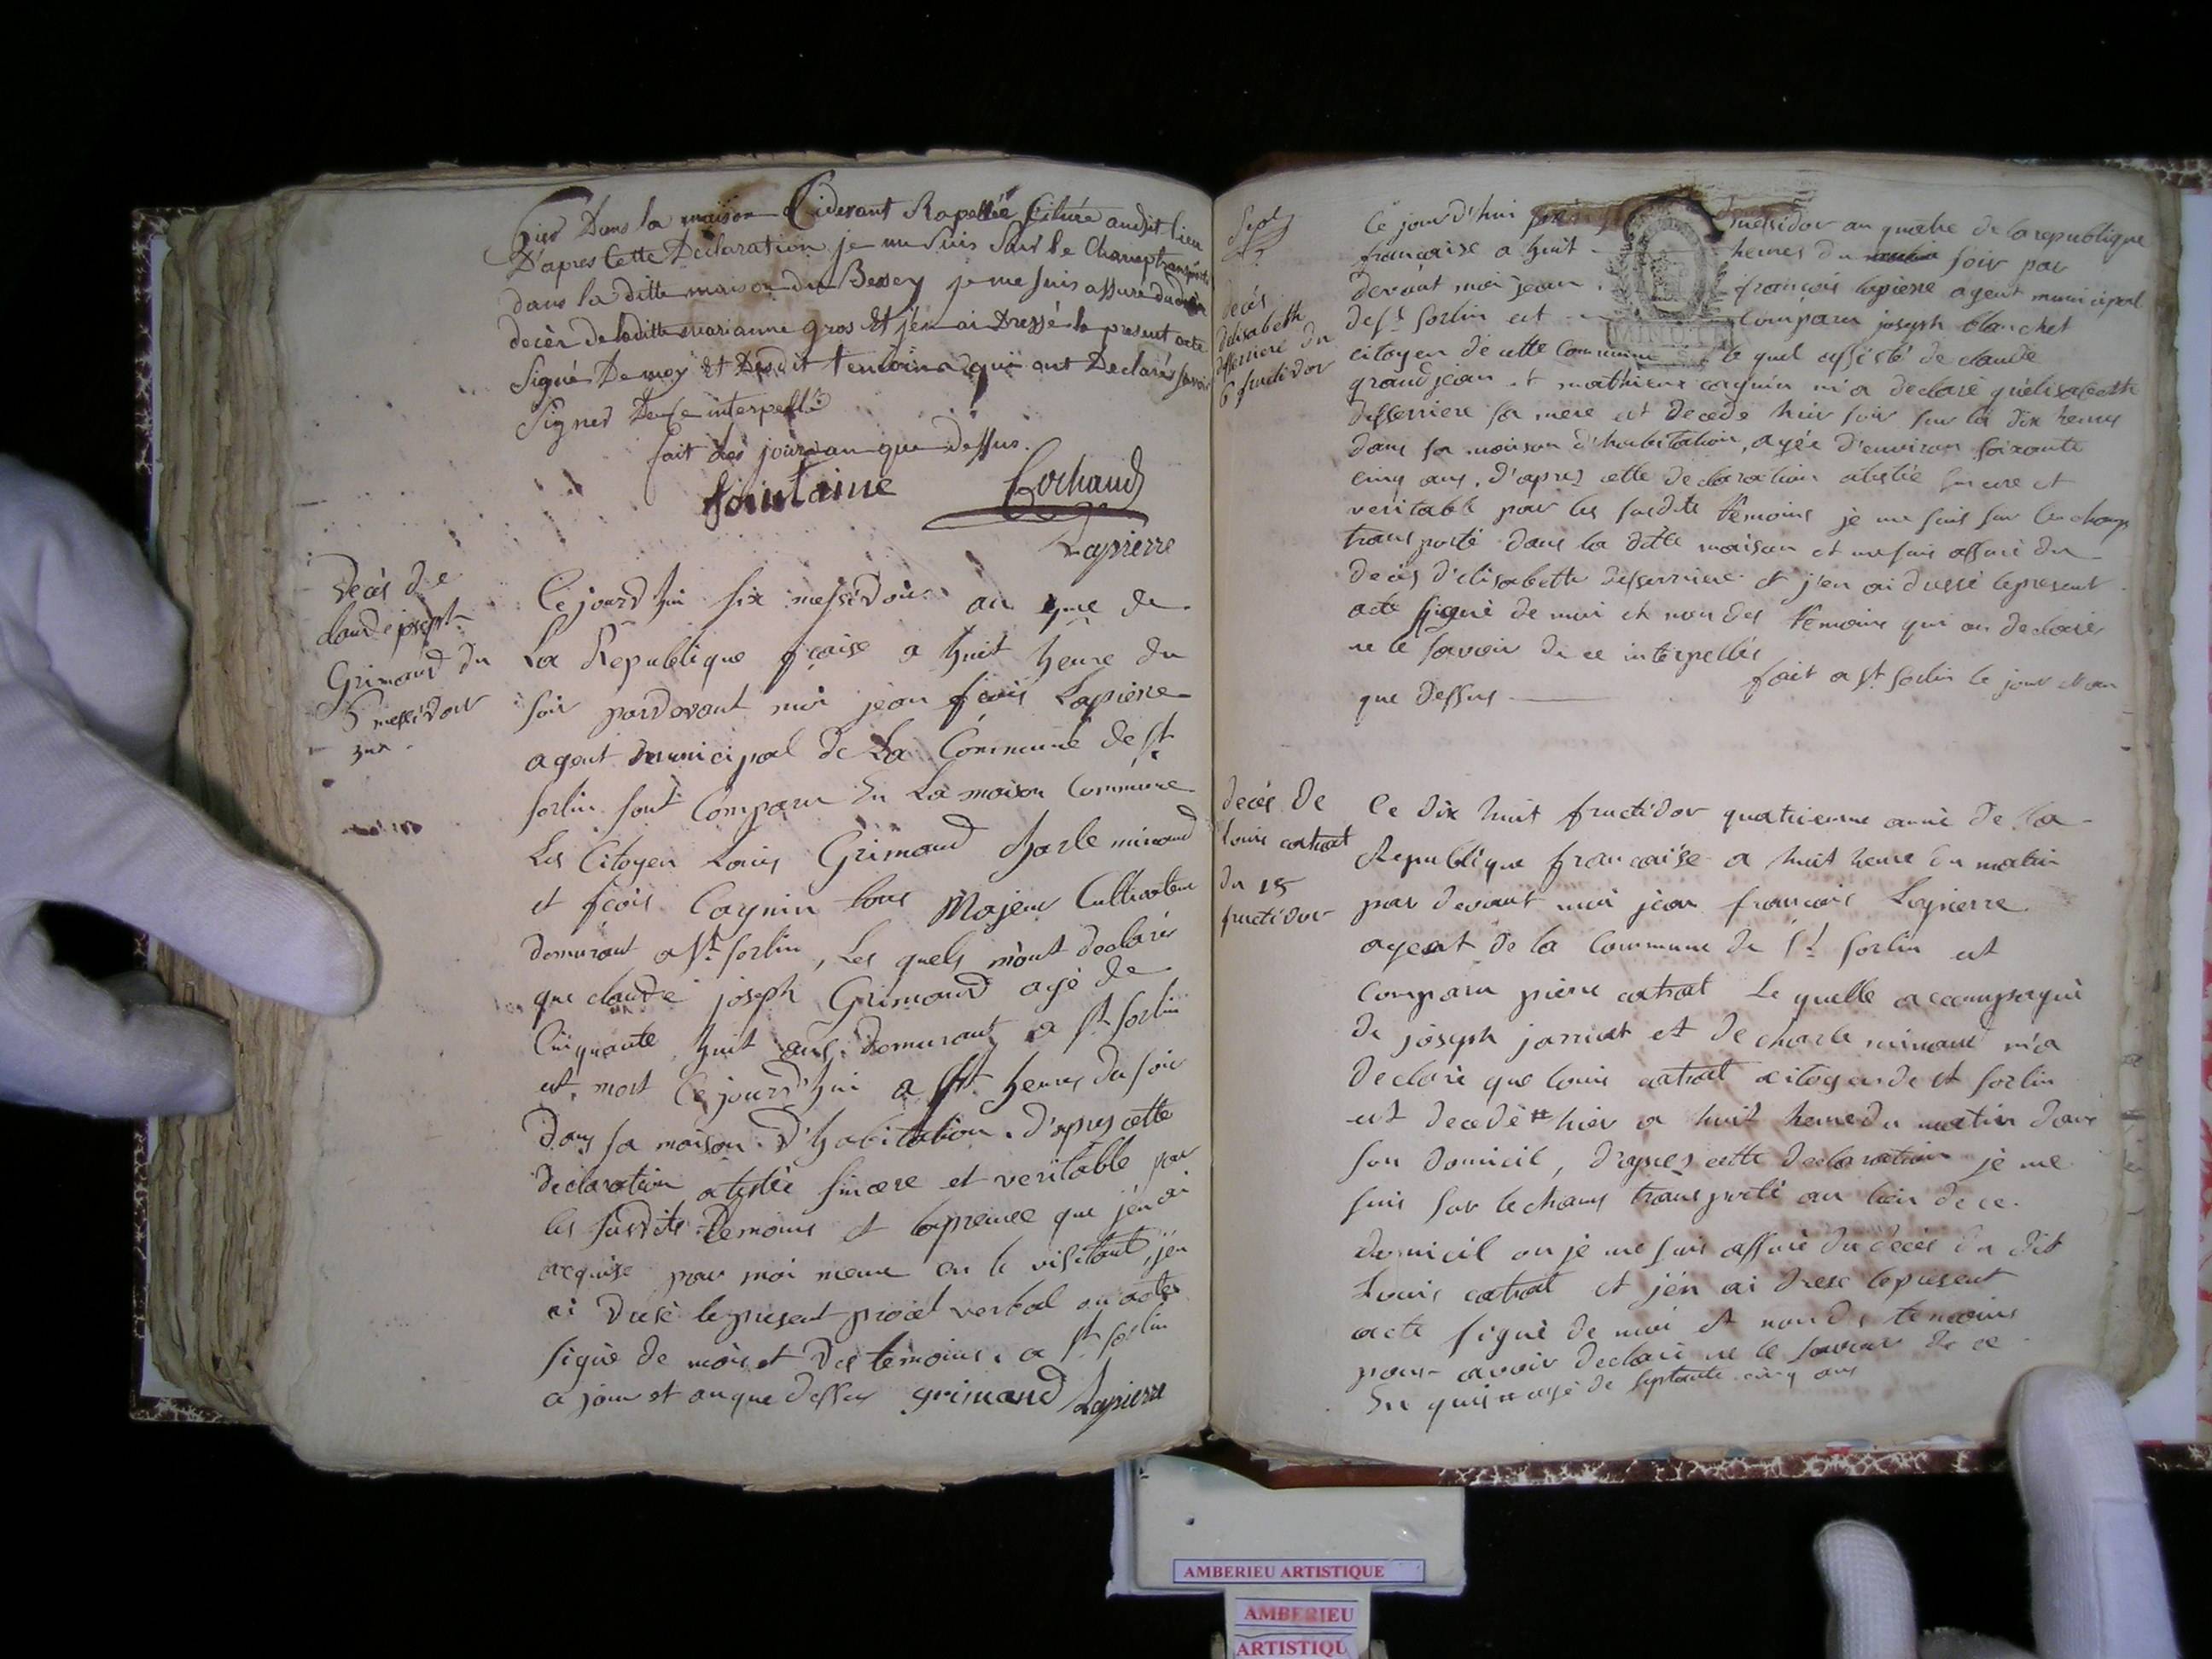 hier Dans la maison Cidevant Rapellée Située audit lieu
D'apres Cette Declaration je me Suis Sur le Champ transporté
dans la ditte maison du Bessey je me suis assuré du
decèr de laditte marianne gros Et j'en ai Dressé le present acte
Signé De moy Et Desdit temoins qui ont Declarés savoir
Signer De Ce interpellé
fait les jour an que dessus.
fontaine Cochaud
Lapierre
Decès de
claude joseph
Grimaud du
messidor
Ce jourd'hui six messidor an 4me de
La Republique fçaise a huit heure du
soir pardevant moi jean fçois Lapierre
agent municipal de La Commune de st
sorlin sont Comparu En La maison Commune
Les Citoyen Louis Grimaud Charle minaud
et fçois Cagnin tous Majeur Cultivateur
demurant a st sorlin, Les quels m'ont declarés
que claude joseph Grimaud agé de
Cinquante huit ans demurant a st sorlin
est mort Ce jourd'hui a sept heures du soir
dans sa maison d'habitation. d'apres cette
declaration atestée sincere et veritable par
les susdits temoins et la preuve que j'en ai
acquise par moi meme en le visitant, j'en
ai dressé le present procet verbal ou acte
signé de moi et des temoins. a st sorlin
a jour et an que dessus grimaud Lapierre
Sept
decès
delisabeth
desserriere du
6 fructidor
Ce jourd'hui messidor an quatre de la republique
francaise a huit heures du soir par
devant moi jean françois lapierre agent municipal
de st sorlin est Comparu joseph blanchet
citoyen de cette Commune le quel assisté de claude
grandjean et mathieux cagnin m'a declaré qu'elisabeth
desserriere sa mere est decedé hier soir sur la dix heures
dans sa maison d'habitation, agée d'environ soixante
cinq ans, d'apres cette declaration atestée sincere et
veritable par les susdits temoins je me suis sur le champ
transporté dans la ditte maison et me suis assuré du
decès d'elisabette desserriere et j'en ai dressé le present
acte signé de moi et non des temoins qui on declaré
ne le savoir de ce interpellés
fait a st sorlin le jour et an
que dessus
decés de
Louis catrat
du 15
fructidor
Ce dix huit fructidor quatrieme année de la
Republique francaise a huit heure du matin
par devant moi jean francois Lapierre
agent de la Commune de st sorlin est
Comparu pierre catrat Le quelle accompagné
de joseph jarriat et de charle minaud m'a
declaré que louis catrat citoyen de st sorlin
est decedé # hier a huit heure du matin dans
son domicil, d'apres cette declaration je me
suis sur le champ transporté au lieu de ce
domicil ou je me suis assuré du decès du dit
Louis catrat et j'en ai dressé le present
acte signé de moi et non des temoins
pour avoir declaré ne le savoir de ce
En quis # agé de septante cinq ans
MINUTE
AMBERIEU ARTISTIQUE
AMBERIEU
ARTISTIQU